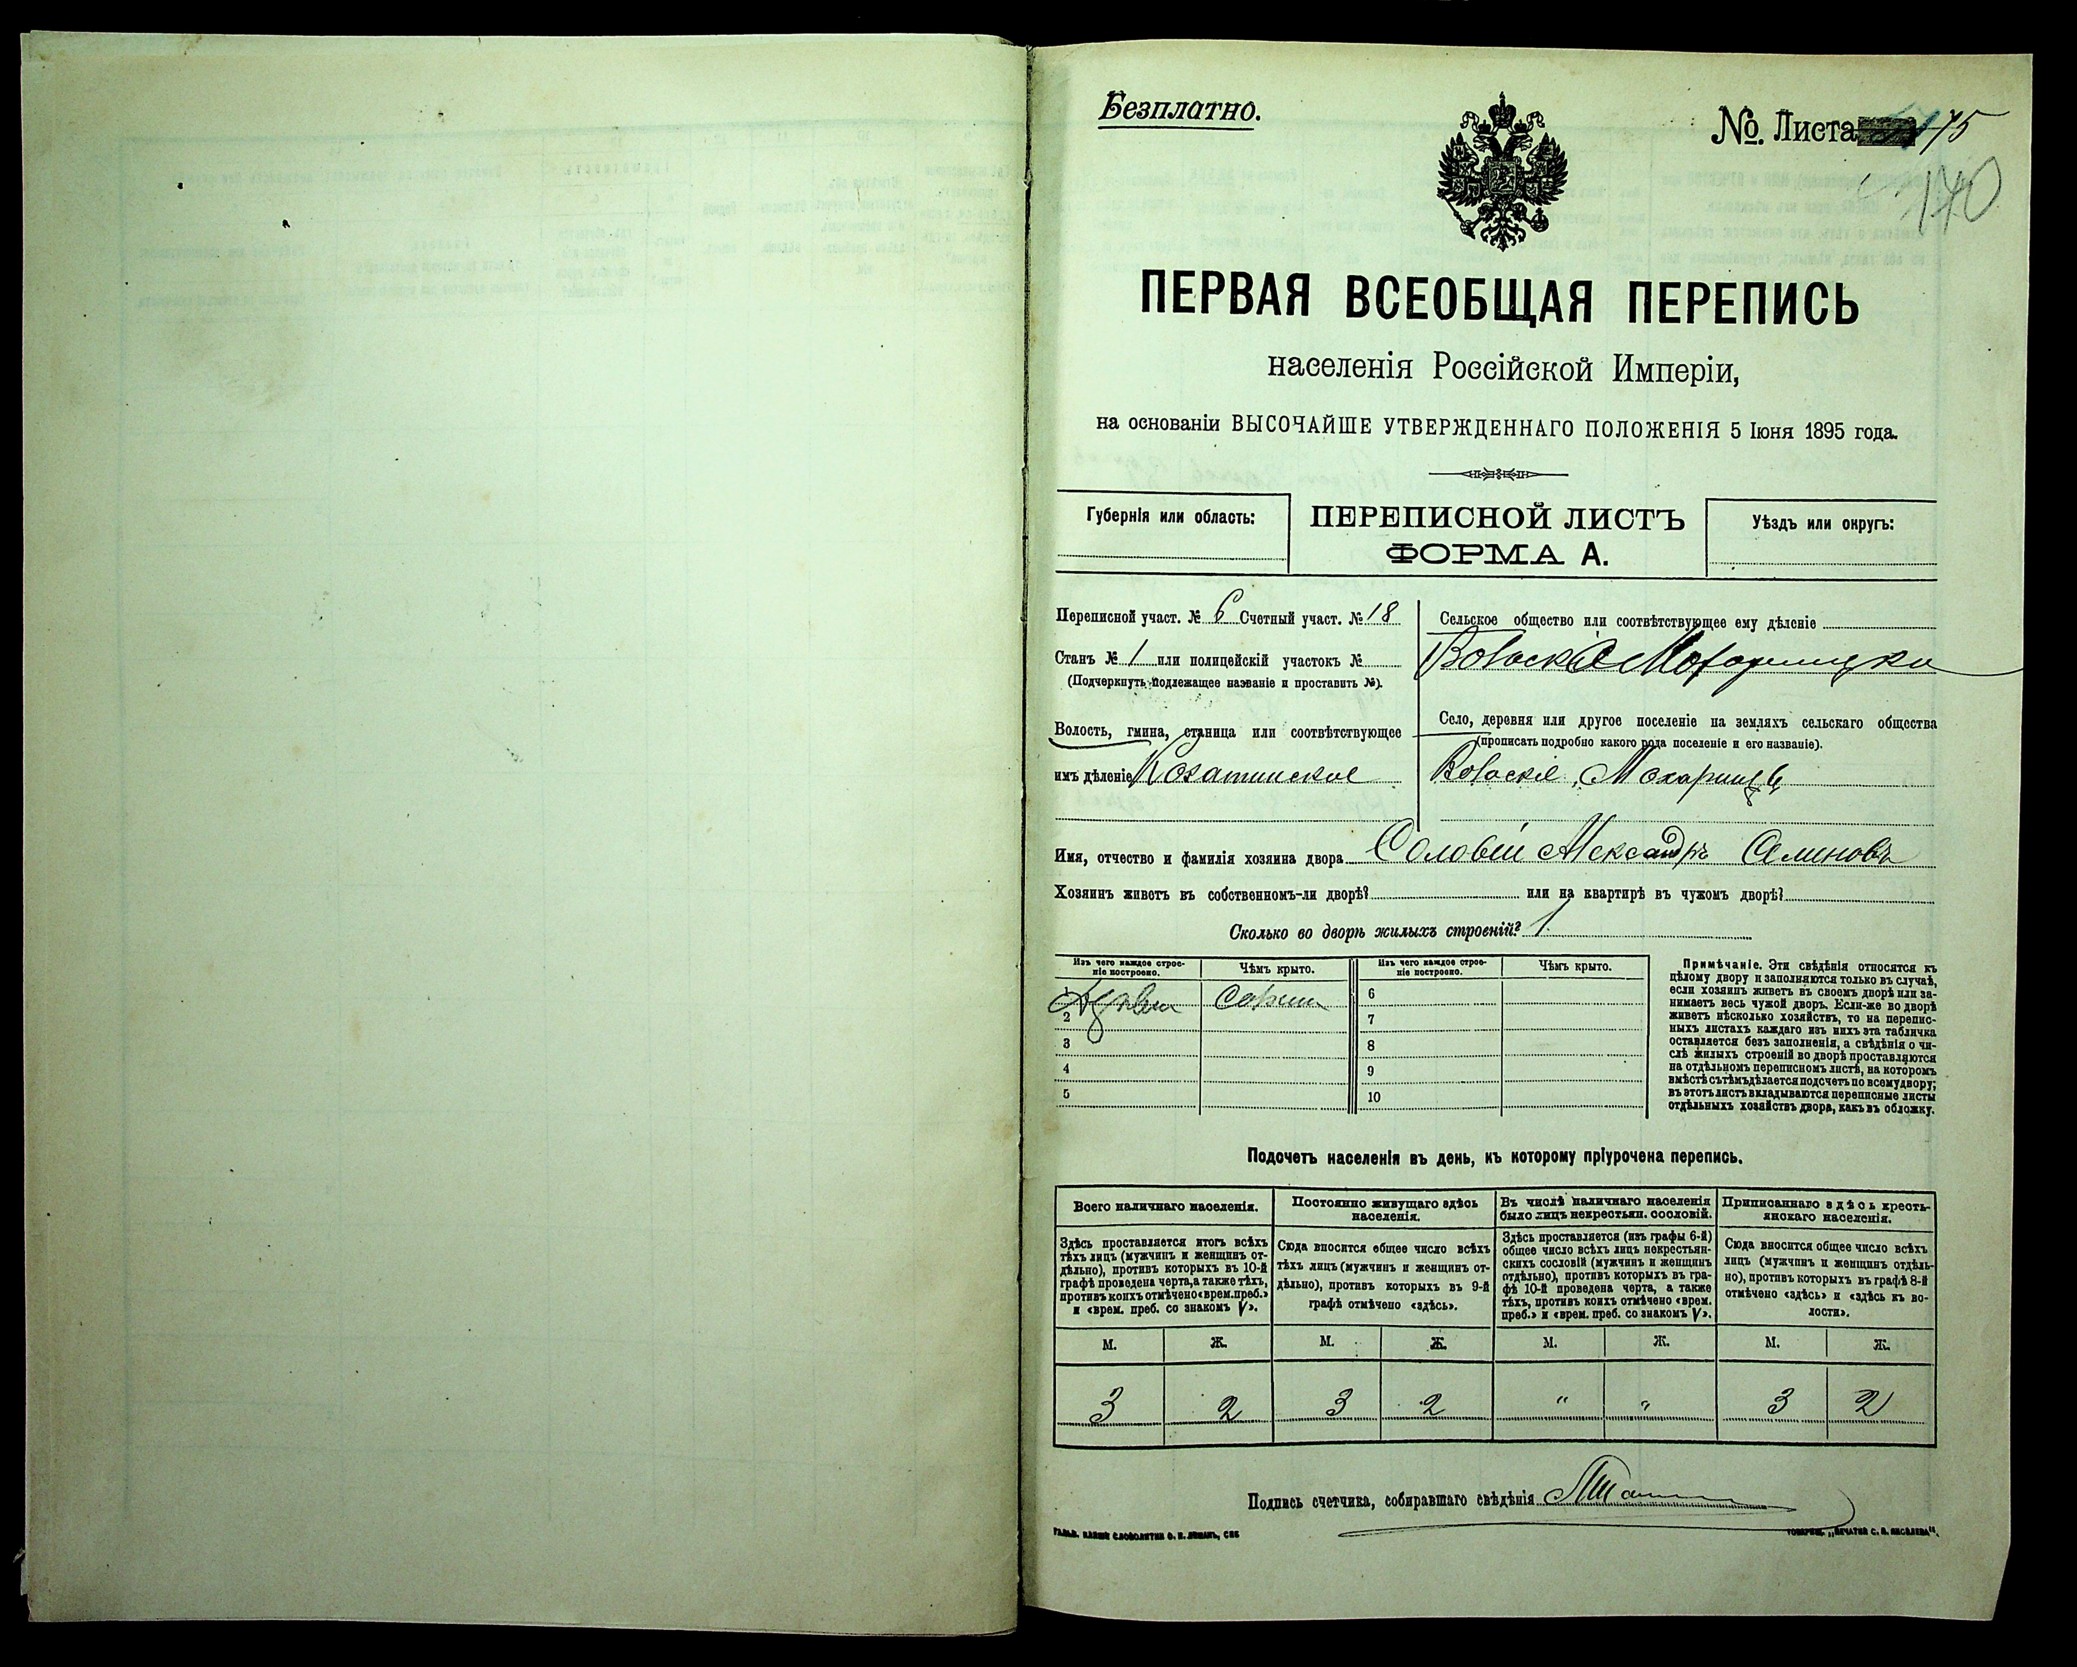 Безплатно.
№. Листа 175
140
ПЕРВАЯ ВСЕОБЩАЯ ПЕРЕПИСЬ
населенія Россійской Имперіи,
на основаніи ВЫСОЧАЙШЕ УТВЕРЖДЕННАГО ПОЛОЖЕНІЯ 5 Іюня 1895 года.
Губернія или область:
ПЕРЕПИСНОЙ ЛИСТЪ
ФОРМА А.
Уѣздъ или округъ:
Переписной участ. № 6 Счетный участ. № 18
Станъ № 1 или полицейскій участокъ №
(Подчеркнуть подлежащее названіе и проставить №).
Волость, гмина, станица или соотвѣтствующее
имъ дѣленіе Козатинское
Сельское общество или соотвѣтствующее ему дѣленіе
Село, деревня или другое поселеніе на земляхъ сельскаго общества
(прописать подробно какого рода поселеніе и его названіе).
Имя, отчество и фамилія хозяина двора Соловій Александръ Семиновъ
Хозяинъ живетъ въ собственномъ-ли дворѣ? или на квартирѣ въ чужомъ дворѣ?
Сколько во дворѣ жилыхъ строеній? 1
Изъ чего каждое строе-
ніе построено.
Чѣмъ крыто.
Изъ чего каждое строе-
ніе построено.
Чѣмъ крыто.
1 6
2 7
3 8
4 9
5 10
Примѣчаніе. Эти свѣдѣнія относятся къ
цѣлому двору и заполняются только въ случаѣ,
если хозяинъ живетъ въ своемъ дворѣ или за-
нимаетъ весь чужой дворъ. Если-же во дворѣ
живетъ нѣсколько хозяйствъ, то на перепис-
ныхъ листахъ каждаго изъ нихъ эта табличка
оставляется безъ заполненія, а свѣдѣнія о чи-
слѣ жилыхъ строеній во дворѣ проставляются
на отдѣльномъ переписномъ листѣ, на которомъ
вмѣстѣ съ тѣмъ дѣлается подсчетъ по всему двору;
въ этотъ листъ вкладываются переписные листы
отдѣльныхъ хозяйствъ двора, какъ въ обложку.
Подсчетъ населенія въ день, къ которому пріурочена перепись.
Всего наличнаго населенія.
Здѣсь проставляется итогъ всѣхъ
тѣхъ лицъ (мужчинъ и женщинъ от-
дѣльно), противъ которыхъ въ 10-й
графѣ проведена черта, а также тѣхъ,
противъ коихъ отмѣчено «врем. преб.»
и «врем. преб. со знакомъ V».
М. Ж.
3 2
Постоянно живущаго здѣсь
населенія.
Сюда вносится общее число всѣхъ
тѣхъ лицъ (мужчинъ и женщинъ от-
дѣльно), противъ которыхъ въ 9-й
графѣ отмѣчено «здѣсь».
М. Ж.
3 2
Въ числѣ наличнаго населенія
было лицъ некрестьян. сословій.
Здѣсь проставляется (изъ графы 6-й)
общее число всѣхъ лицъ некрестьян-
скихъ сословій (мужчинъ и женщинъ
отдѣльно), противъ которыхъ въ гра-
фѣ 10-й проведена черта, а также
тѣхъ, противъ коихъ отмѣчено «врем.
преб.» и «врем. преб. со знакомъ V».
М. Ж.
" "
Приписаннаго здѣсь кресть-
янскаго населенія.
Сюда вносится общее число всѣхъ
лицъ (мужчинъ и женщинъ отдѣль-
но), противъ которыхъ въ графѣ 8-й
отмѣчено «здѣсь» и «здѣсь къ во-
лости».
М. Ж.
3 2
Подпись счетчика, собиравшаго свѣдѣнія